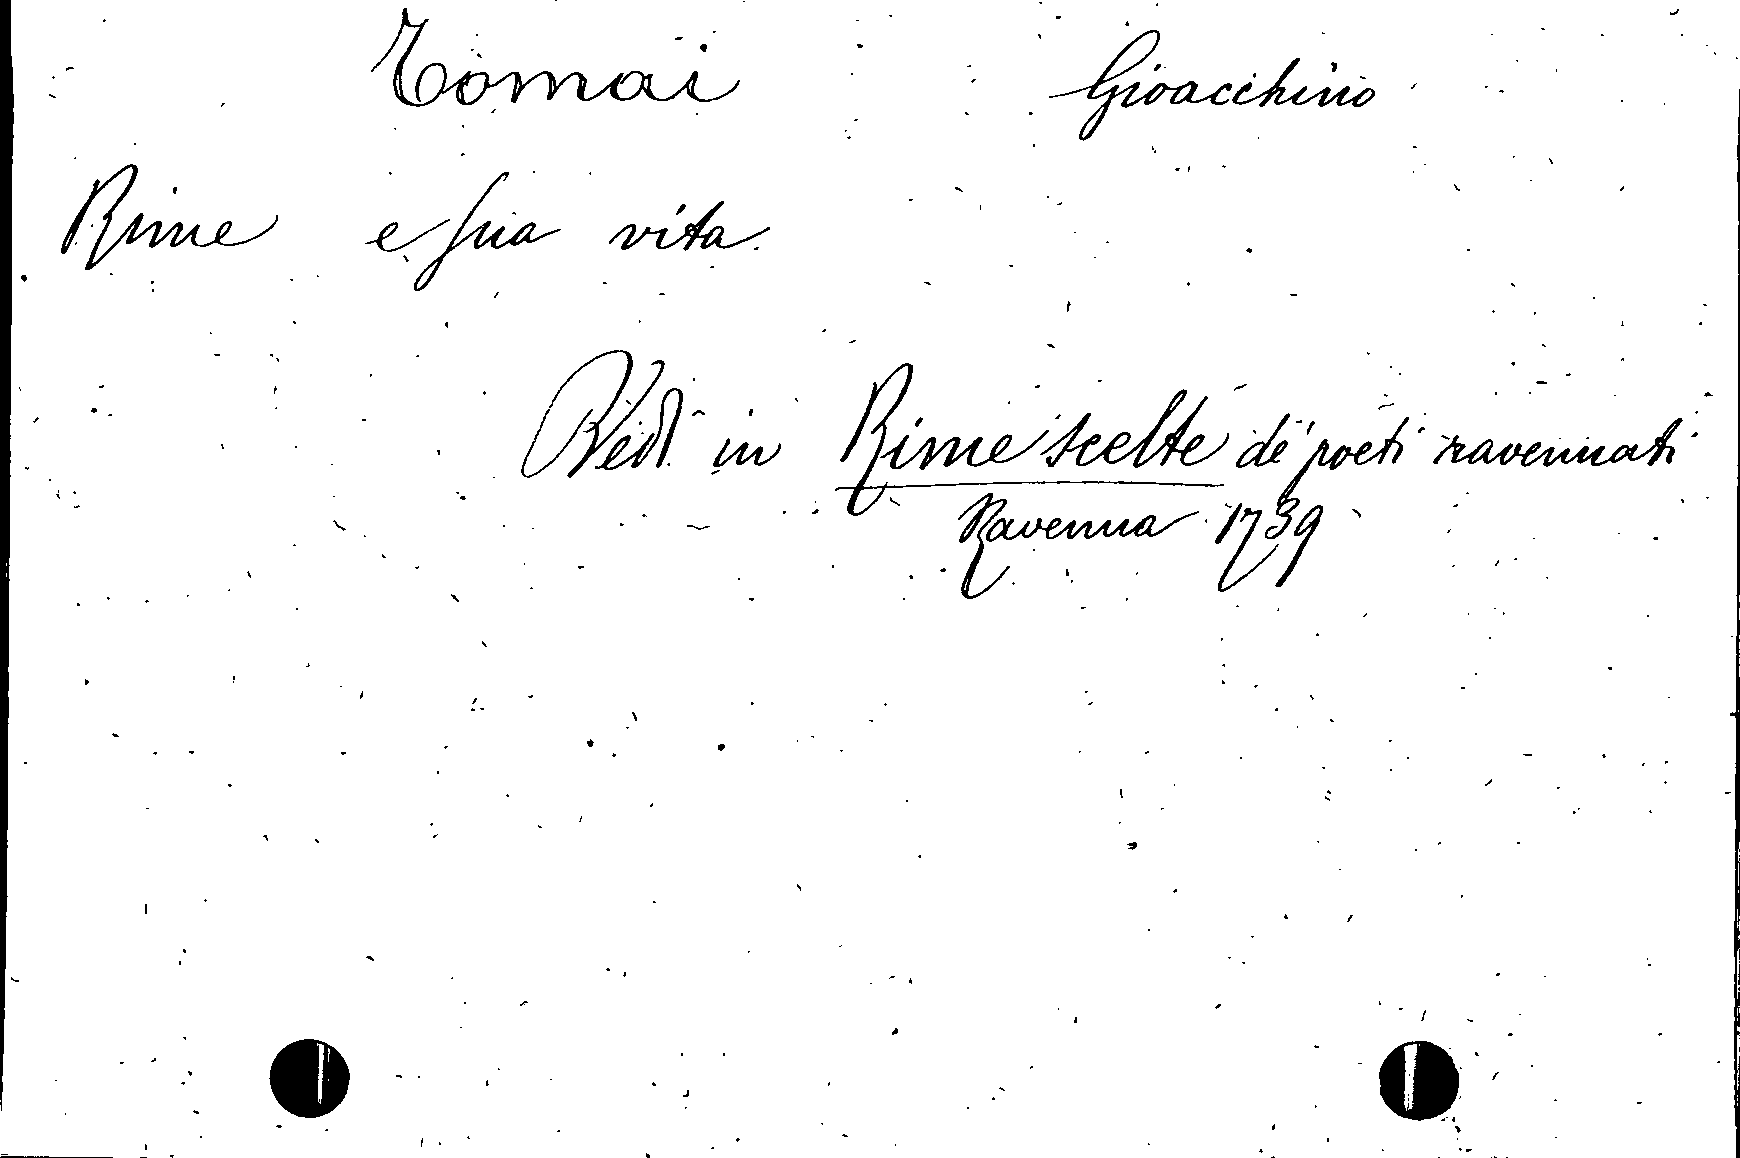 Tomai Gioacchino
Rime e sua vita.
Vedi in Rime scelte de' poeti ravennati
Ravenna 1739